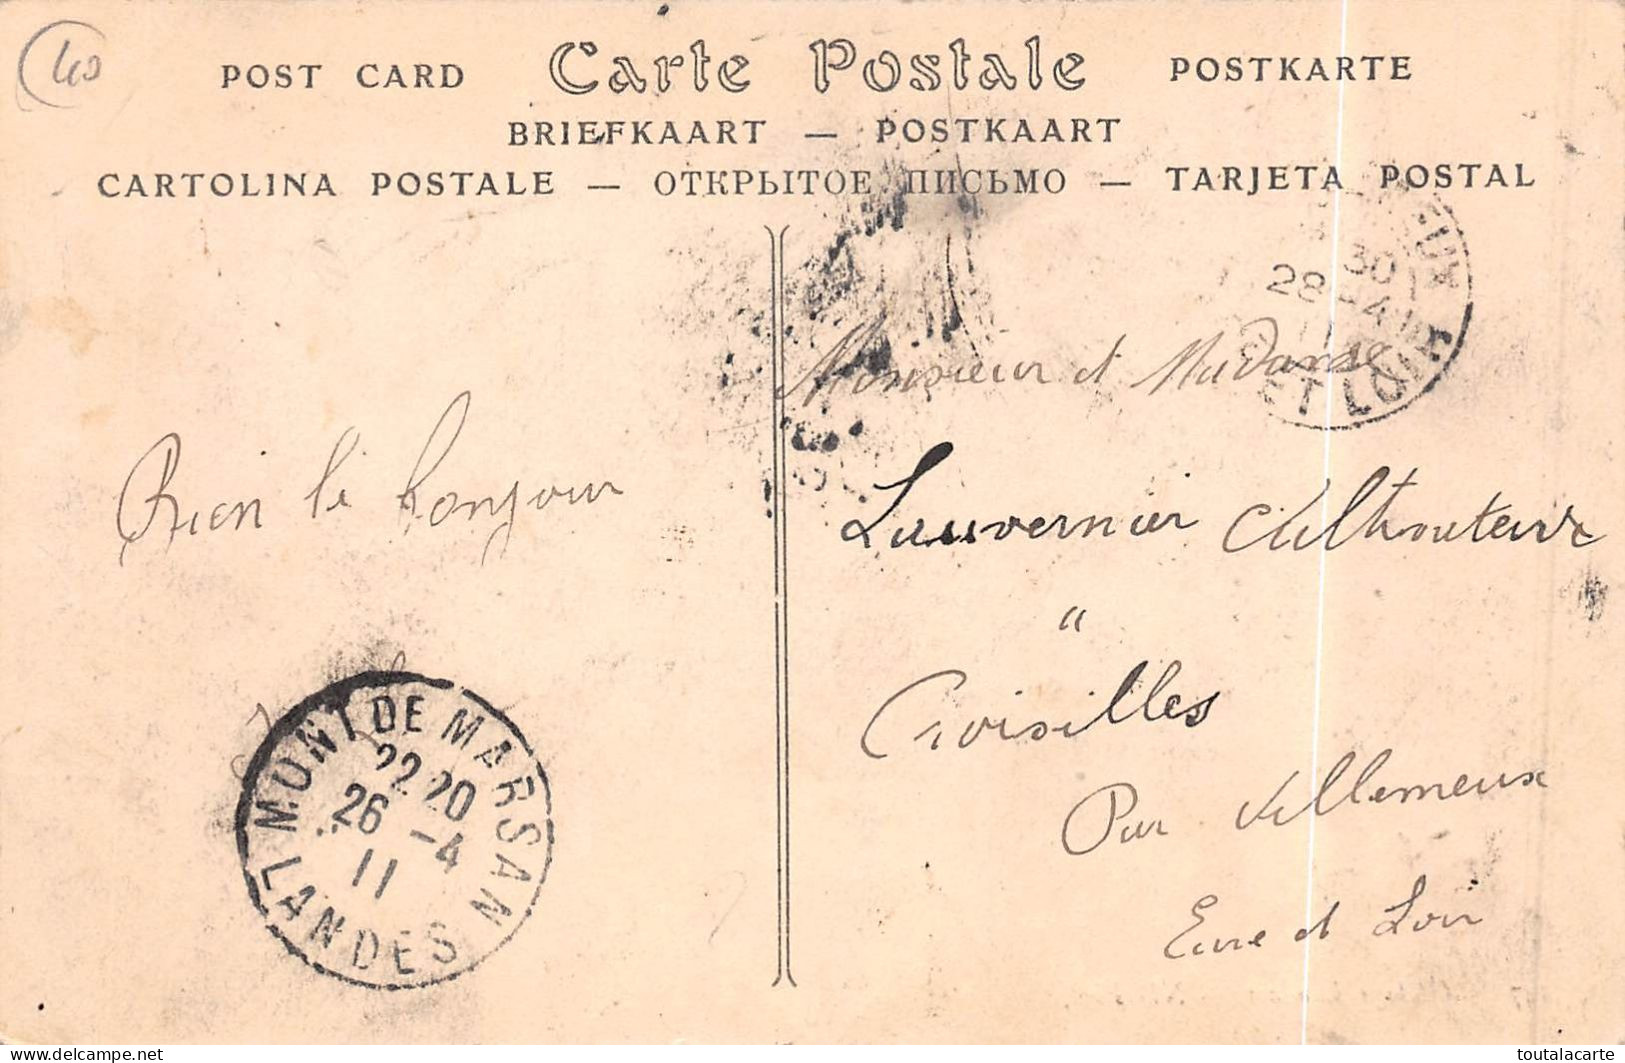 40
POST CARD Carte Postale POSTKARTE
BRIEFKAART — POSTKAART
CARTOLINA POSTALE — ОТКРЫТОЕ ПИСЬМО — TARJETA POSTAL
Bien le bonjour
MONT DE MARSAN
22 20
26 -4
11
LANDES
30
28 -4
11
ET LOIR
Monsieur et Madame
Lauvernier
"
Croisilles
Par Villemeux
Eure et Loir
delcampe.net
toutalacarte